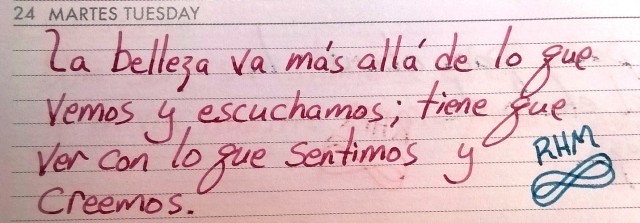 24 MARTES TUESDAY
La belleza va más allá de lo que
vemos y escuchamos; tiene que
ver con lo que sentimos y
creemos.
RHM